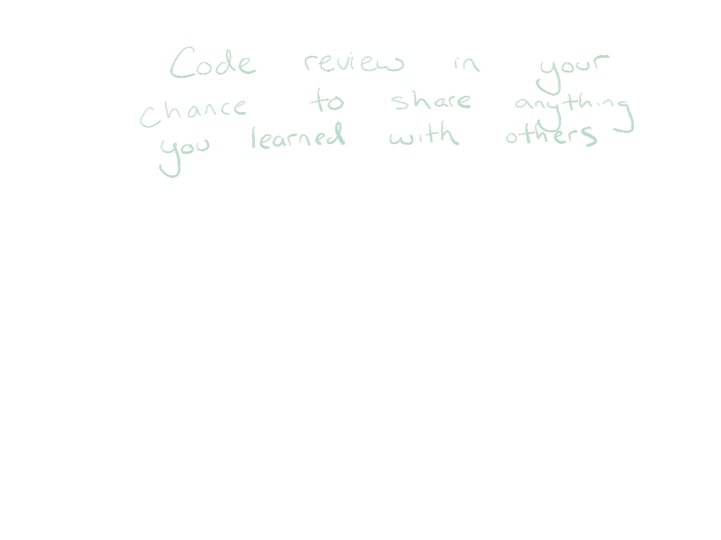 Code review in your
chance to share anything
you learned with others